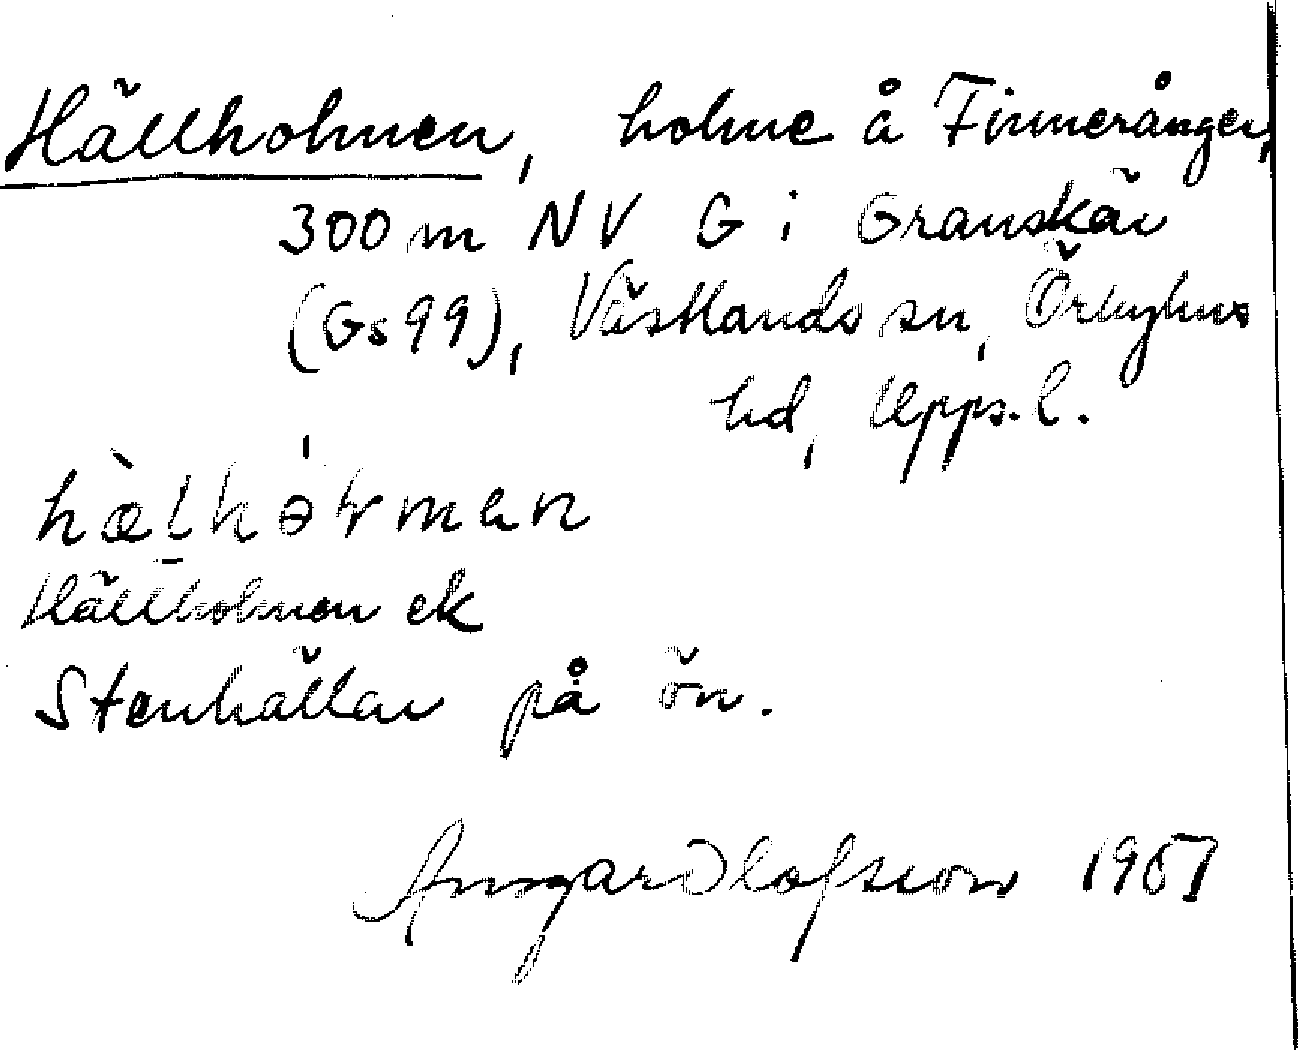 Hällholmen, holme å Finnerånger,
300 m NV G i Granskär
(Gs 99), Västlands sn, Örbyhus
hd, Upps. l.
Hällholmen ek
Stenhällar på ön.
Ansgar Olofsson 1951